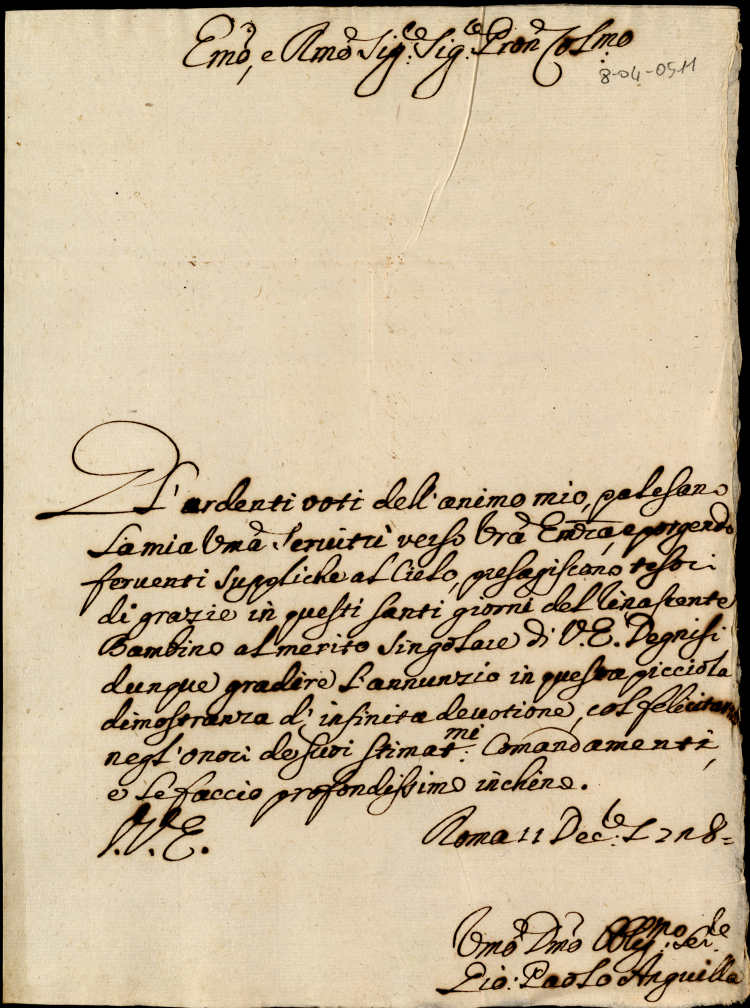 Emo, e Rmo Sig.e Sig.e Pron Colmo
8-04-0511
L'ardenti voti dell'animo mio, palesano
la mia Uma Seruitù verso Vra Emza, e porgendo
feruenti suppliche al Cielo, presagiscono tesori
di grazie in questi santi giorni del Nascente
Bambino al merito singolare di V.E. Degnisi
dunque gradire l'annunzio in questa picciola
dimostranza d'infinita deuotione, col felicitarmi
negl'onori de suoi stimat.mi Comandamenti,
e le faccio profondissimo inchino.
V.E. Roma 11 Dec.e
Umo Dmo Oblig.mo Ser.e
Gio: Paolo Anguilla